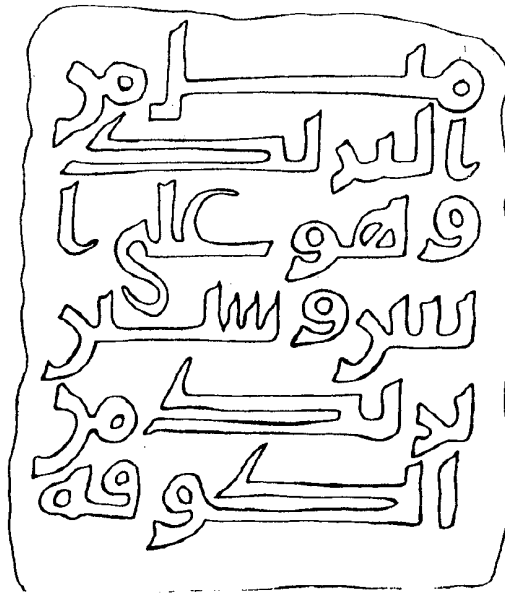 ميل من
البريد
وهو على ا
ثنين وستين
بريد من
الكوفة